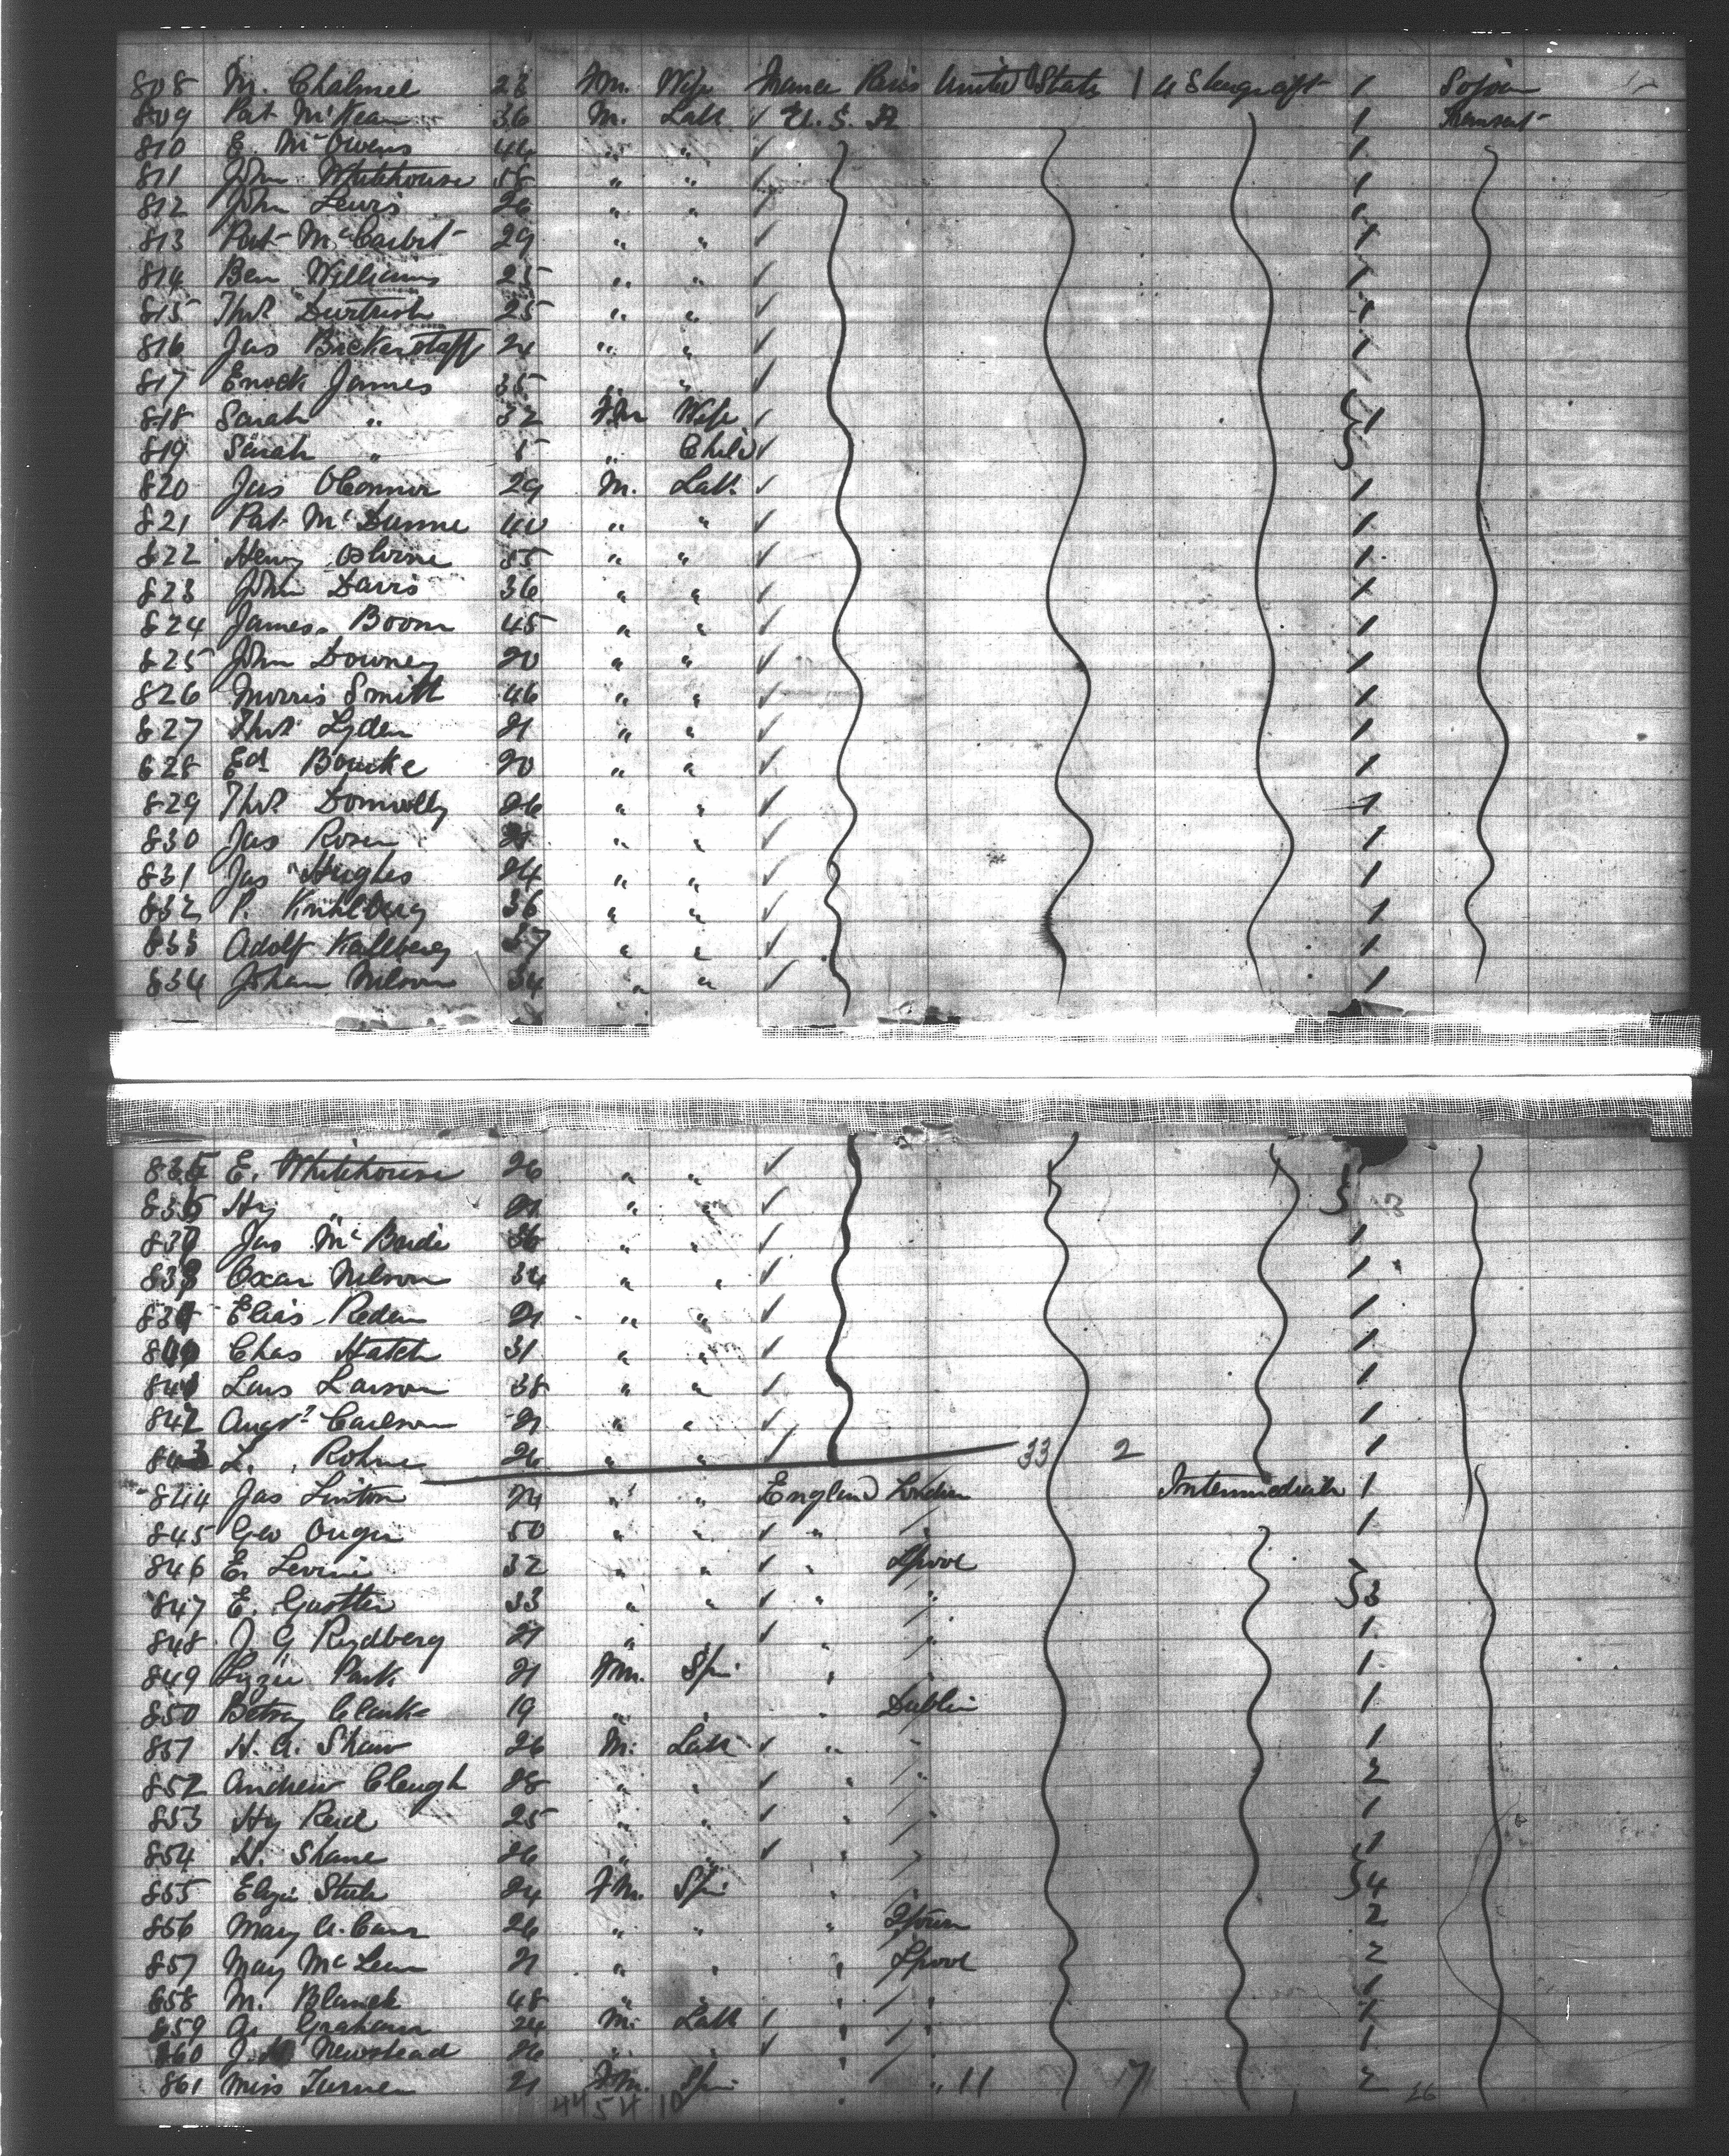 808 M. Chalmel 23 Fm. Wife France Paris United States 1 4 Steerage aft 1 Sojourn
809 Pat McKean 36 M. Labr ✓ U.S.A 1 Transit
810 E. McOwens 44 " " ✓ 1
811 John Whitehouse 58 " " ✓ 1
812 John Lewis 26 " " ✓ 1
813 Pat McCarbit 29 " " ✓ 1
814 Ben Williams 25 " " ✓ 1
815 Thos 25 " " ✓ 1
816 Jas Bickerstaff 24 " " ✓ 1
817 Enock James 35 " " ✓
818 Sarah " 32 Fm Wife ✓ 1
819 Sarah " 5 " Child ✓
820 Jas OConnor 29 M. Labr ✓ 1
821 Pat McDunne 40 " " ✓ 1
822 Henry Osborne 55 " " ✓ 1
823 John Davis 36 " " ✓ 1
824 James Boom 45 " " ✓ 1
825 John Downey 20 " " ✓ 1
826 Morris Smith 46 " " ✓ 1
827 Thos Lyden 21 " " ✓ 1
828 Ed Bourke 20 " " ✓ 1
829 Thos Donnolly 26 " " ✓ 1
830 Jas Rosen " " ✓ 1
831 Jas Hughes 24 " " ✓ 1
832 P. 36 " " ✓ 1
833 Adolf Kallberg 37 " " ✓ 1
834 Johan Nilson 34 " " ✓ 1
835 E. Whitehouse 26 " " ✓
836 Hy " 21 " " ✓ 3
837 Jas McBride 36 " " ✓ 1
838 Oxar Nilson 34 " " ✓ 1
839 Elias Reden 21 " " ✓ 1
840 Chas Hatch 31 " " ✓ 1
841 Lars Larson 38 " " ✓ 1
842 Augst Carlson 21 " " ✓ 1
843 L. Rohne 26 " " ✓ 33 2 1
844 Jas Linton 24 " " England London Intermediate 1
845 Geo 50 " " ✓ " " 1
846 E. Levine 32 " " ✓ " Lpool
847 E. 33 " " ✓ " " 3
848 J G Rydberg 21 " ✓ " " 1
849 Lizzie Park 21 Fm. Spin " " 1
850 Betsy Clarke 19 " " " Dublin 1
851 H. A. Shaw 26 M. Labr ✓ " " 1
852 Andrew Clough 28 " " ✓ " " 2
853 Hy Reid 25 " " ✓ " " 1
854 H. Shane 26 " " ✓ " " 1
855 Eliza Stute 24 Fm. Spin " " 4
856 Mary A. Carr 26 " " " 2
857 May McLean 21 " " " Lpool 2
858 M. Blanck 48 " " " " 1
859 A. Graham 24 M. Labr ✓ " " 1
860 J. Newstead 26 " " ✓ " " 1
861 Miss Turner 21 Fm. Spin " " 11 17 2 26
44 54 10